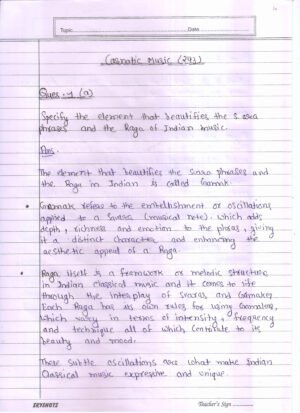 Topic
Date
Carnatic Music (243)
Ques-1 (a)
Specify the element that beautifies the Swara
phrases and the Raga of Indian music.
Ans.
The element that beautifies the Swara phrases and
the Raga in Indian is called Gamak.
Gamak refers to the embellishment or oscillations
applied to a Swara (musical note). which adds
depth, richness and emotion to the phras, giving
it a distinct character and enhancing the
aesthetic appeal of a Raga.
Raga itself is a framework or melodic structure
in Indian classical music and it comes to life
through the interplay of Swaras and Gamakas
Each Raga has its own rules for using Gamakas,
which vary in terms of intensity, frequency
and technique all of which contribute to its
beauty and mood.
These subtle oscillations are what make Indian
Classical music expressive and unique.
Teacher's Sign